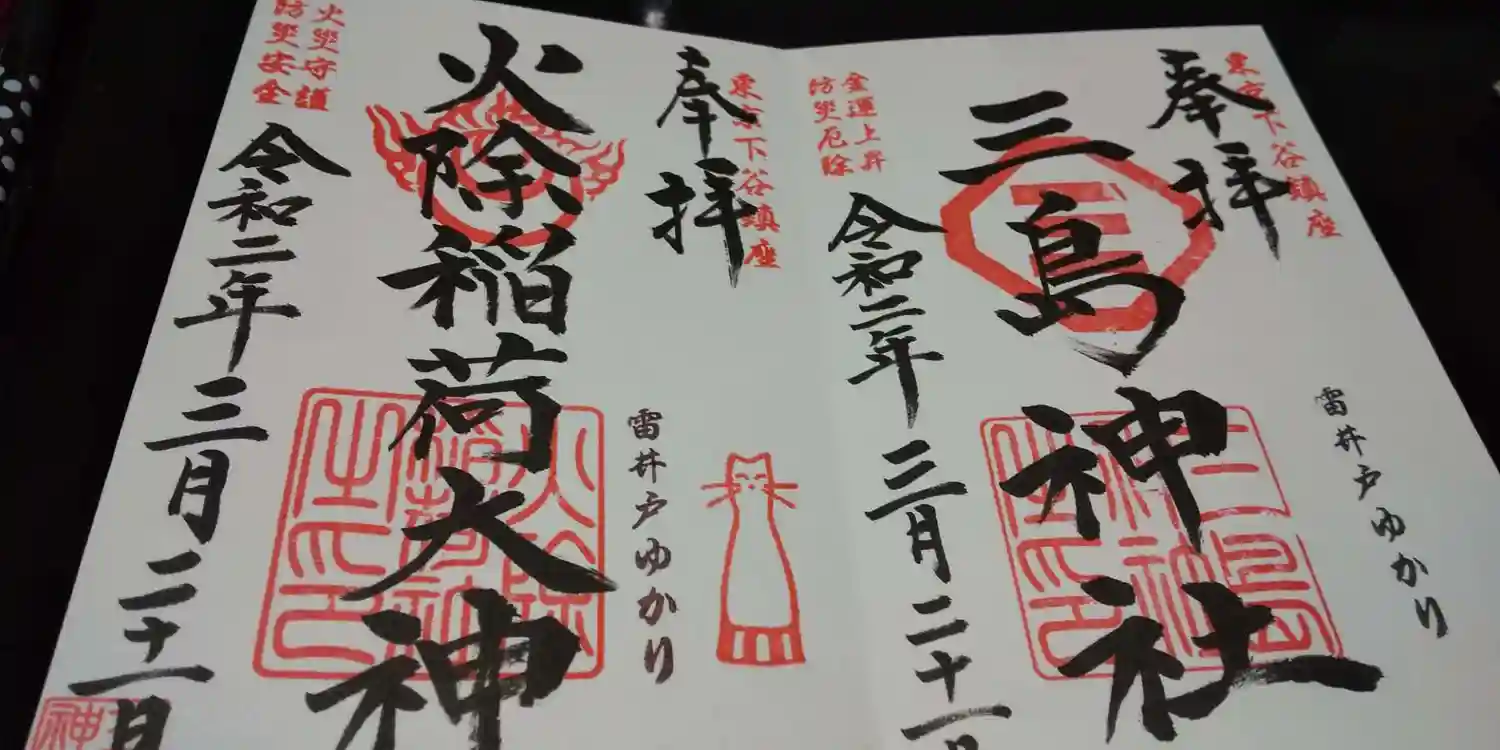 東京下谷鎮座
奉拝
三島神社
雷井戸ゆかり
三島
神社
之印
金運上昇
防災厄除
令和二年三月二十一日
東京下谷鎮座
奉拝
火除稲荷大神
雷井戸ゆかり
火除
稲荷神
之印
火災守護
防災安全
令和二年三月二十一日
神